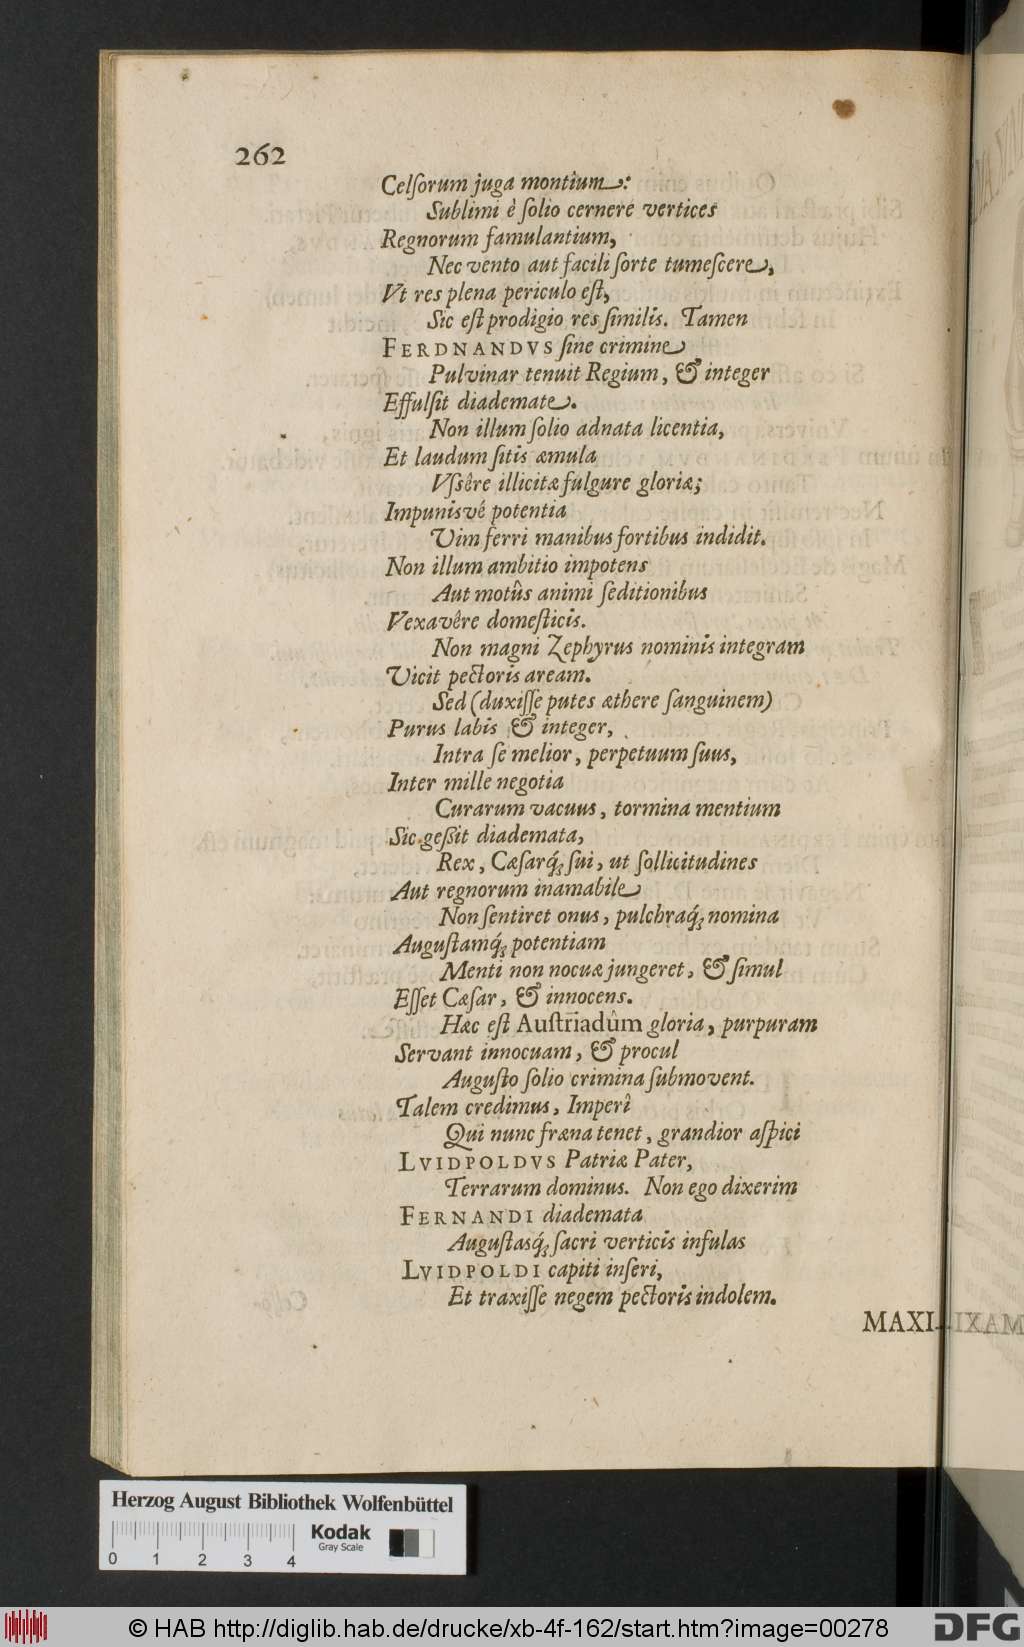 262
Celſorum juga montium:
Sublimi è ſolio cernere vertices
Regnorum famulantium,
Nec vento aut facili ſorte tumeſcere,
Vt res plena periculo eſt,
Sic eſt prodigio res ſimilis. Tamen
FERDNANDVS ſine crimine
Pulvinar tenuit Regium, & integer
Effulſit diademate.
Non illum ſolio adnata licentia,
Et laudum ſitis æmula
Vſsêre illicitæ fulgure gloriæ;
Impunisvé potentia
Vim ferri manibus fortibus indidit.
Non illum ambitio impotens
Aut motûs animi ſeditionibus
Vexavêre domeſticis.
Non magni Zephyrus nominis integram
Vicit pectoris aream.
Sed (duxiſſe putes æthere ſanguinem)
Purus labis & integer,
Intra ſe melior, perpetuum ſuus,
Inter mille negotia
Curarum vacuus, tormina mentium
Sic geßit diademata,
Rex, Cæſarq́; ſui, ut ſollicitudines
Aut regnorum inamabile
Non ſentiret onus, pulchraq́; nomina
Auguſtamq́; potentiam
Menti non nocuæ jungeret, & ſimul
Eſſet Cæſar, & innocens.
Hæc eſt Auſtriadûm gloria, purpuram
Servant innocuam, & procul
Auguſto ſolio crimina ſubmovent.
Talem credimus, Imperî
Qui nunc fræna tenet, grandior aſpici
LVIDPOLDVS Patriæ Pater,
Terrarum dominus. Non ego dixerim
FERNANDI diademata
Auguſtasq́; ſacri verticis infulas
LVIDPOLDI capiti inſeri,
Et traxiſſe negem pectoris indolem.
MAXI-
Herzog August Bibliothek Wolfenbüttel
Kodak
Gray Scale
0 1 2 3 4
© HAB http://diglib.hab.de/drucke/xb-4f-162/start.htm?image=00278
DFG